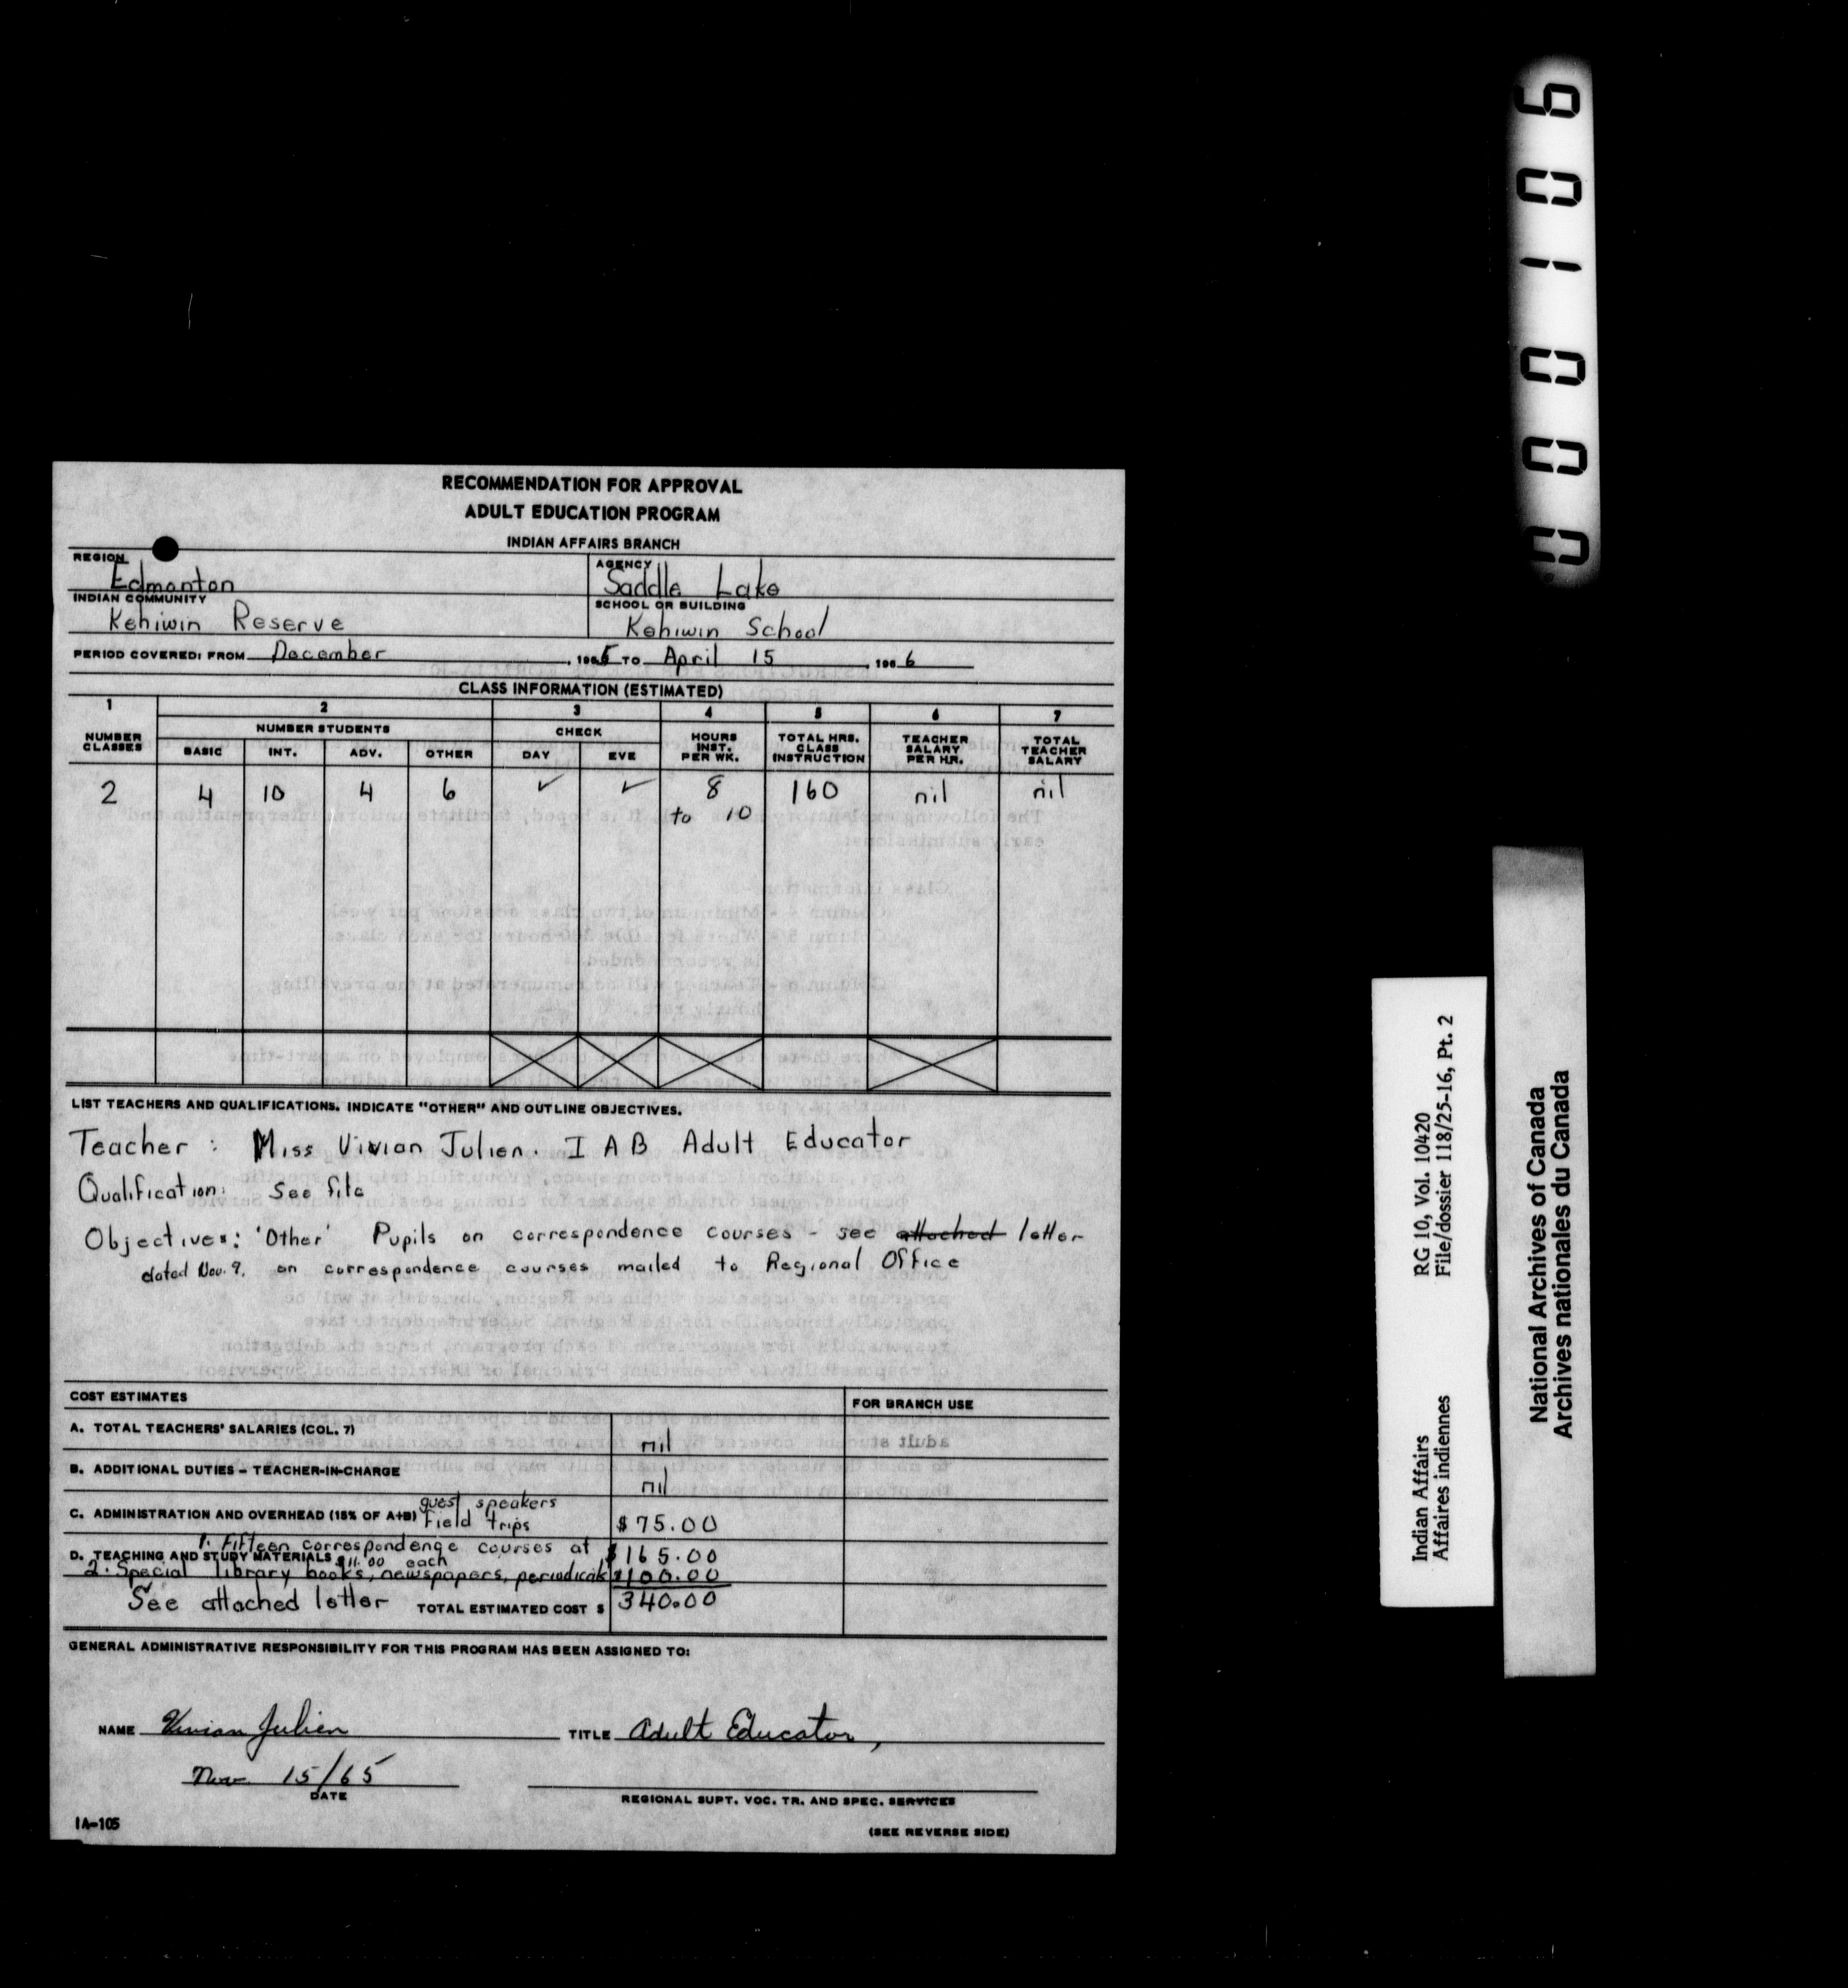 RECOMMENDATION FOR APPROVAL
ADULT EDUCATION PROGRAM
INDIAN AFFAIRS BRANCH
REGION
Edmonton
AGENCY
Saddle Lake
INDIAN COMMUNITY
Kehiwin Reserve
SCHOOL OR BUILDING
Kehiwin School
PERIOD COVERED: FROM December , 1965 TO April 15 , 1966
CLASS INFORMATION (ESTIMATED)
1 2 3 4 5 6 7
NUMBER CLASSES
NUMBER STUDENTS
BASIC INT. ADV. OTHER
CHECK
DAY EVE
HOURS INST. PER WK.
TOTAL HRS. CLASS INSTRUCTION
TEACHER SALARY PER HR.
TOTAL TEACHER SALARY
2 4 10 4 6 ✓ ✓ 8 160 nil nil
to 10
LIST TEACHERS AND QUALIFICATIONS. INDICATE "OTHER" AND OUTLINE OBJECTIVES.
Teacher : Miss Vivian Julien. I A B Adult Educator
Qualification: See file
Objectives: 'Other' Pupils on correspondence courses - see attached letter
dated Nov. 9. on correspondence courses mailed to Regional Office
COST ESTIMATES
FOR BRANCH USE
A. TOTAL TEACHERS' SALARIES (COL. 7)
nil
B. ADDITIONAL DUTIES - TEACHER-IN-CHARGE
nil
guest speakers
C. ADMINISTRATION AND OVERHEAD (15% OF A+B) Field trips $75.00
1. Fifteen correspondence courses at
D. TEACHING AND STUDY MATERIALS $11.00 each $165.00
2. Special library books, newspapers, periodicals $100.00
See attached letter TOTAL ESTIMATED COST $ 340.00
GENERAL ADMINISTRATIVE RESPONSIBILITY FOR THIS PROGRAM HAS BEEN ASSIGNED TO:
NAME Vivian Julien TITLE Adult Educator,
Nov. 15/65
DATE
REGIONAL SUPT. VOC. TR. AND SPEC. SERVICES
IA-105
(SEE REVERSE SIDE)
000106
Indian Affairs RG 10, Vol. 10420
Affaires indiennes File/dossier 118/25-16, Pt. 2
National Archives of Canada
Archives nationales du Canada